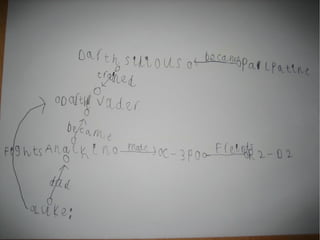 Darth sidious became parlpatine
trained
Darth vader
became
Fights Anaikin made C-3PO Freinds R2-D2
dad
Luke